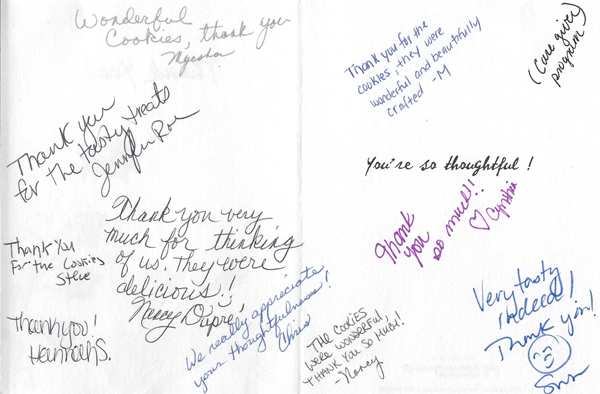 Wonderful
Cookies, thank you
Myesha
Thank you
for the tasty treats
Jennifer Roe
Thank you very
much for thinking
of us. They were
delicious!!
Nancy Dupre,
Thank You
For the Cookies
Steve
Thank you!
Hannah S.
We really appreciate
your thoughtfulness!
Chris
Thank you for the
cookies, they were
wonderful and beautifully
crafted -M
(Care giver
program)
You're so thoughtful!
Thank
you
so much!!
♡ Cynthia
The Cookies
were wonderful,
THANK YOU So Much!
-Nancy
Very tasty
indeed!
Thank you!